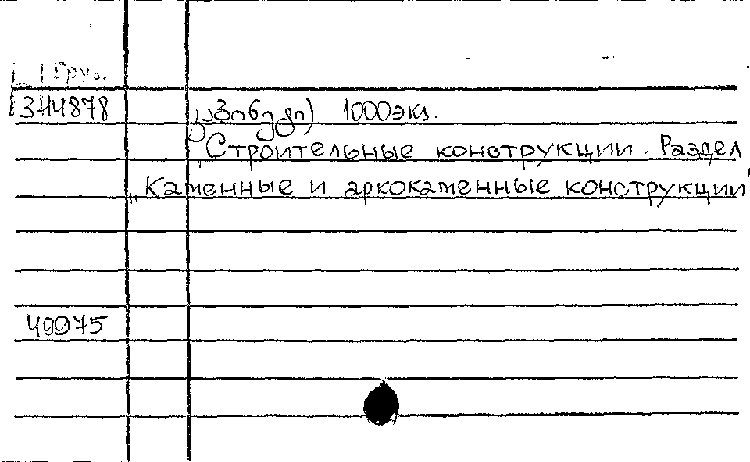 Груз.
344878 კაბინეტი) 1000экз.
Строительные конструкции. Раздел
„Каменные и аркокаменные конструкции"
49075